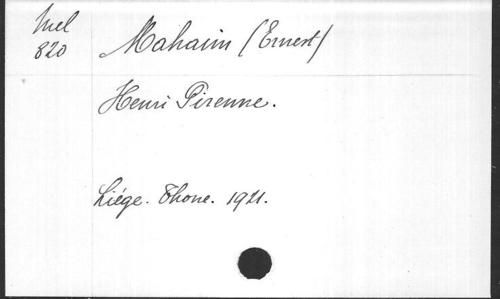 Mel
820
Mahaim (Ernest)
Henri Pirenne.
Liége. Thone. 1921.